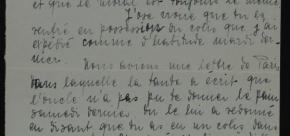 et que le moral est toujours le même
J'ose croire que tu es
rentré en possession du colis que j'ai
expédié comme d'habitude mardi der-
nier.
Nous avons une lettre de Paris
dans laquelle la tante a écrit que
l'oncle n'a pas pu te donner le pain
samedi dernier, on le lui a redonné
en disant que tu as eu un colis dans